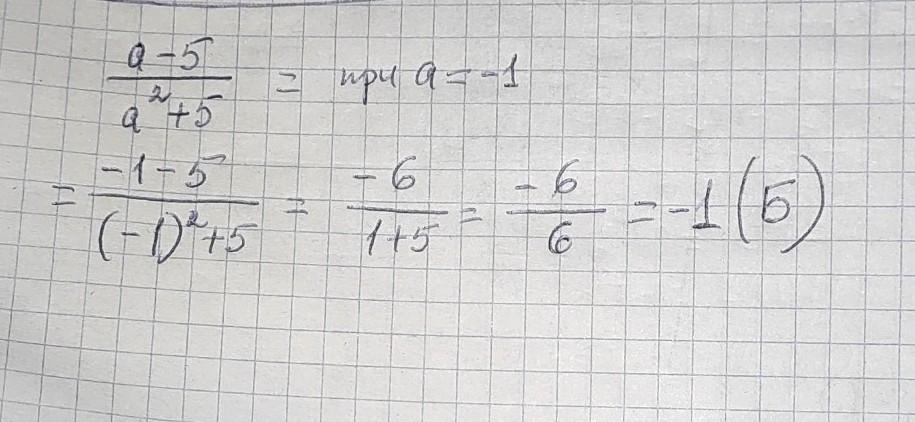 a-5/a²+5 = при a=-1
= -1-5/(-1)²+5 = -6/1+5 = -6/6 = -1(5)